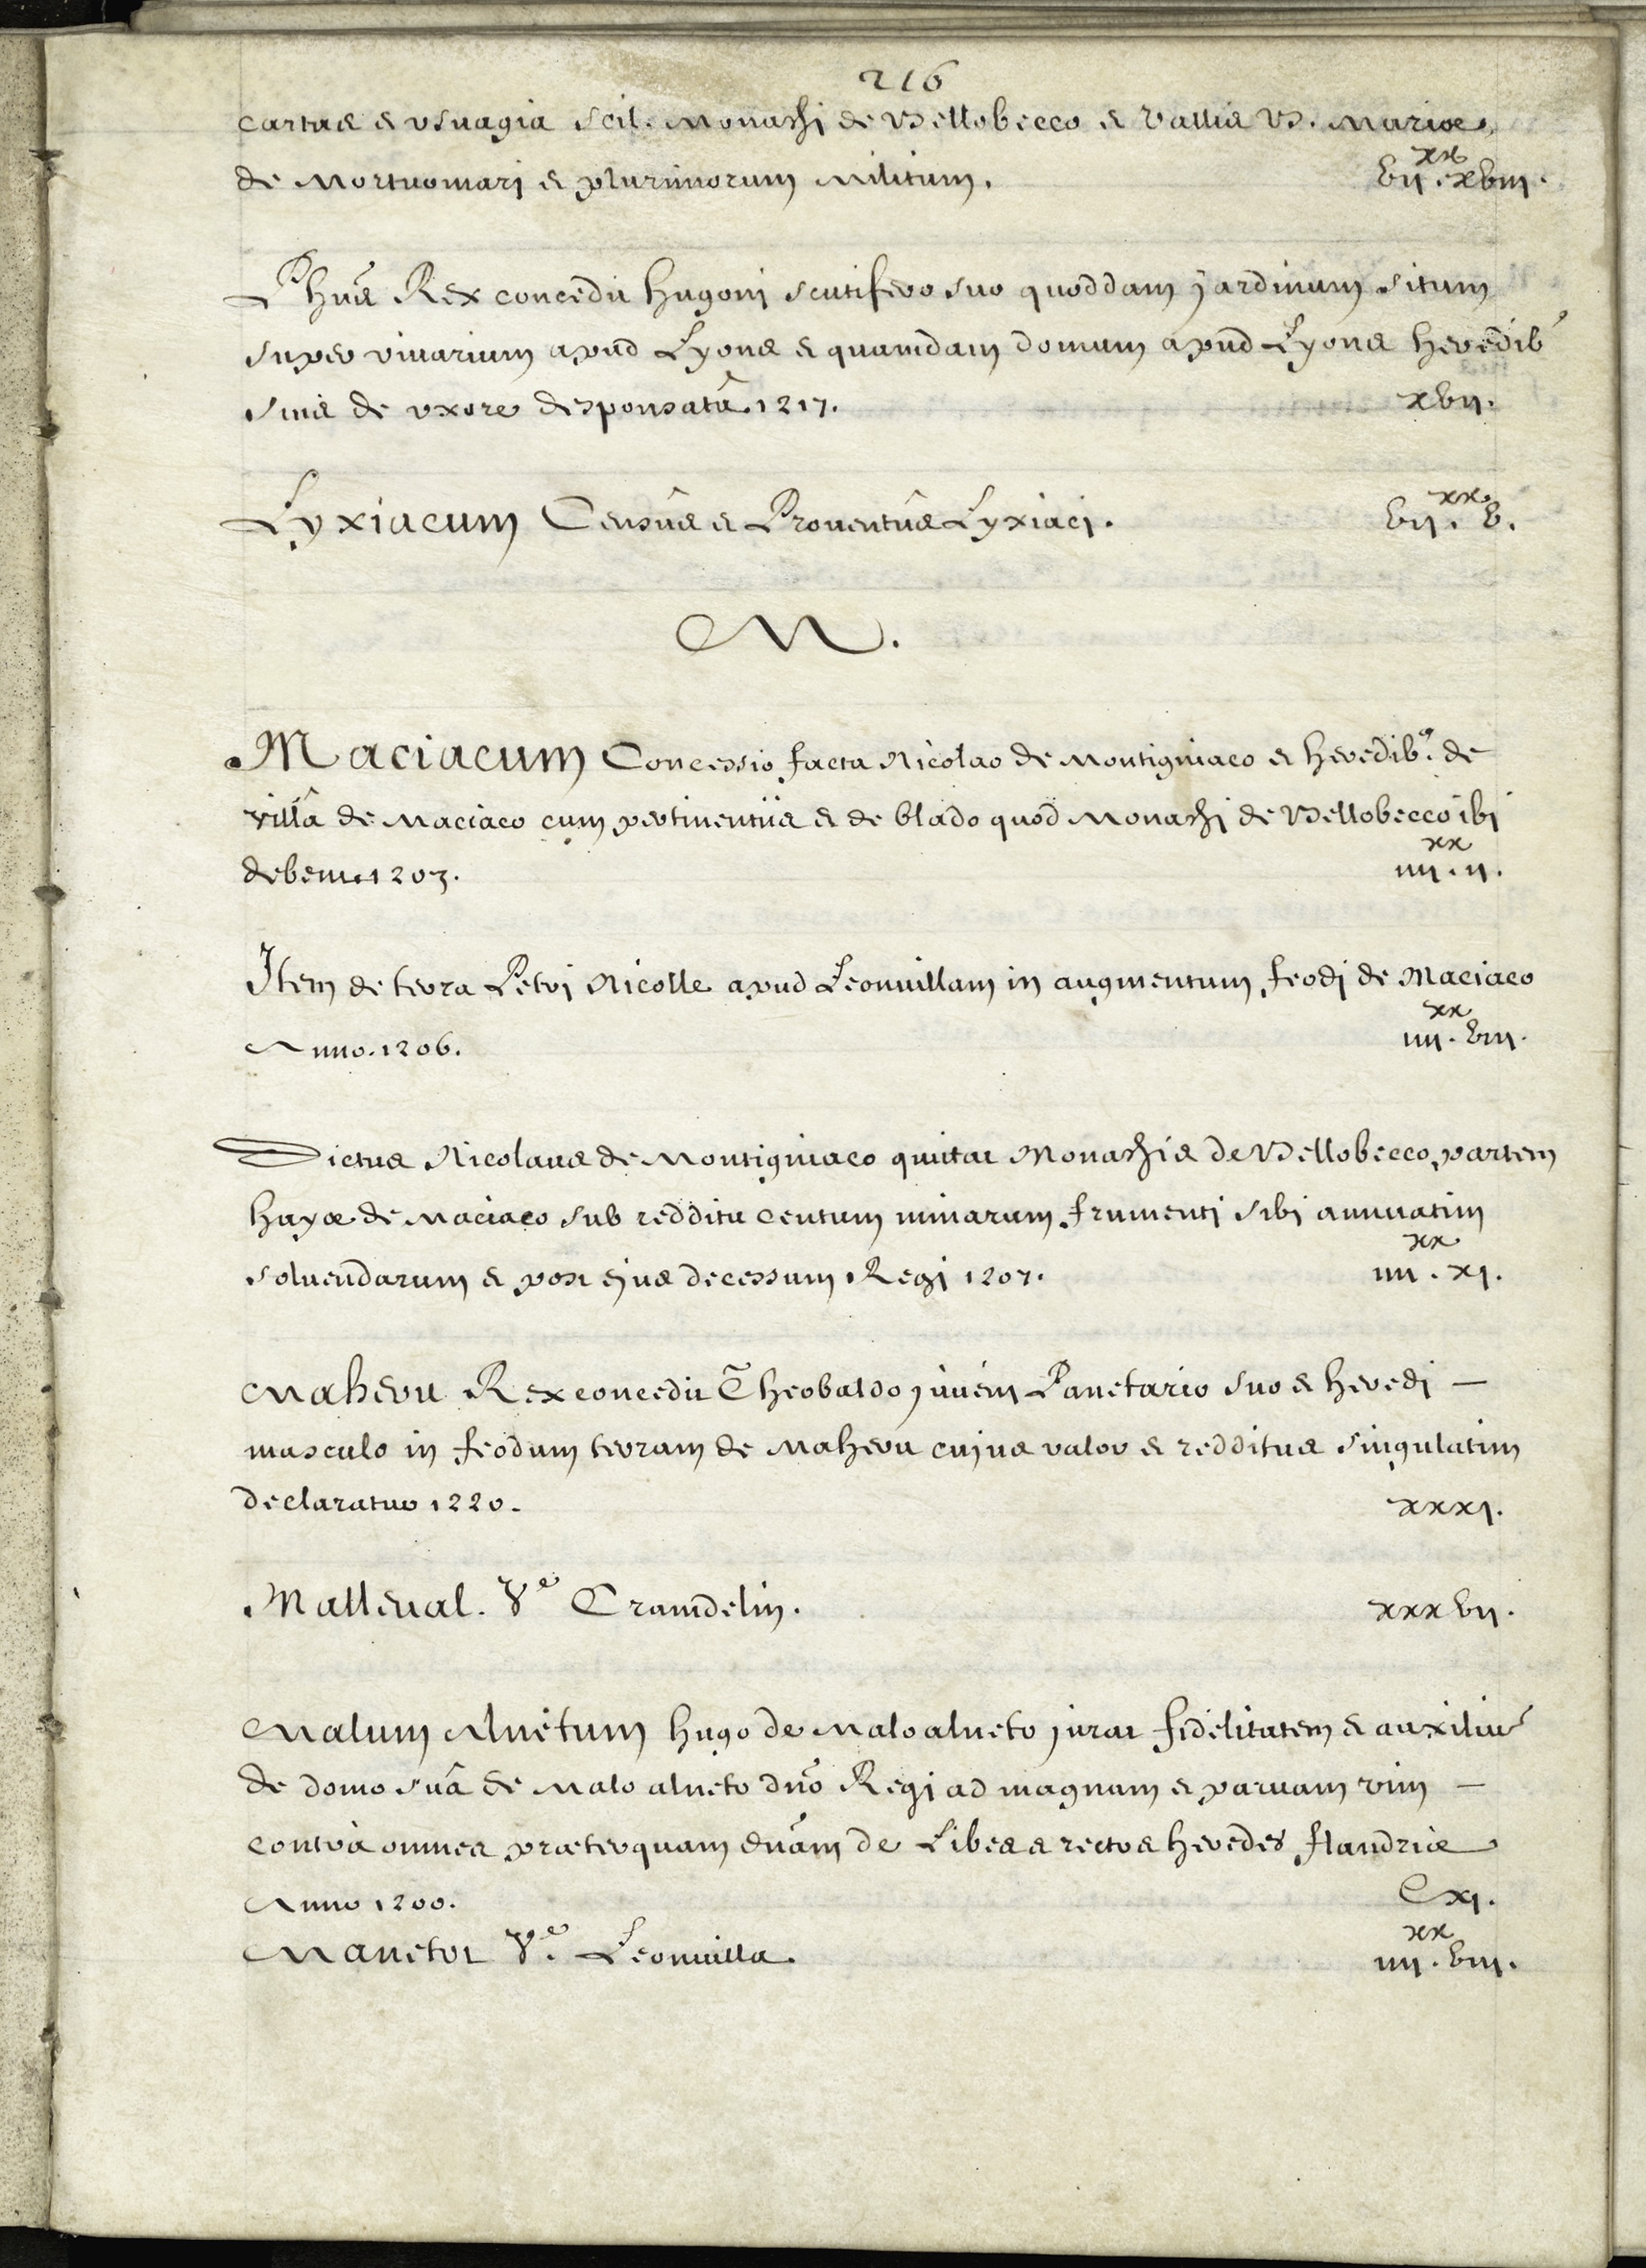 216
cartas & vsuagia scil. Monachi de Bellobecco & Vallis B. Mariæ
de Mortuomari & plurimorum Militum. bij^xx. xbiij.
Phūs Rex concedit hugoni scutifero suo quoddam jardinum situm
super viuarium apud Lyons & quamdam domum apud Lyons heredib'
suis de vxore desponsatâ. 1217. xbij.
Lyxiacum Censûs & Prouentûs Lyxiaci. bij^xx. b.
M.
Maciacum Concessio facta Nicolao de Montigniaco & heredib'. de
villâ de Maciaco cum pertinentiis & de blado quod Monachi de Bellobecco ibi
debent 1203. iiij^xx. ij.
Item de terra Petri Nicolle apud Leonuillam in augmentum feodi de Maciaco
Anno. 1206. iiij^xx. biij.
Dictus Nicolaus de Montigniaco quittat Monachis de Bellobecco partem
hayæ de Maciaco sub redditu centum minarum frumenti sibi annuatim
soluendarum & post ejus decessum Regi 1207. iiij^xx. xj.
Maheru Rex concedit Theobaldo juueni Panetario suo & heredi –
masculo in feodum terram de Maheru cujus valor & redditus singulatim
declaratur 1220. xxxj.
Malleual. V^e Cramdelin. xxxbij.
Malum Alnetum hugo de Malo alneto jurat fidelitatem & auxiliū
de domo suâ de Malo alneto dn̄o Regi ad magnam & paruam vim –
contrà omnes præterquam dn̄am de Libes & rectos heredes flandriæ
Anno 1200. Cxj.
Manetot V^e. Leonuilla. iiij^xx. biij.